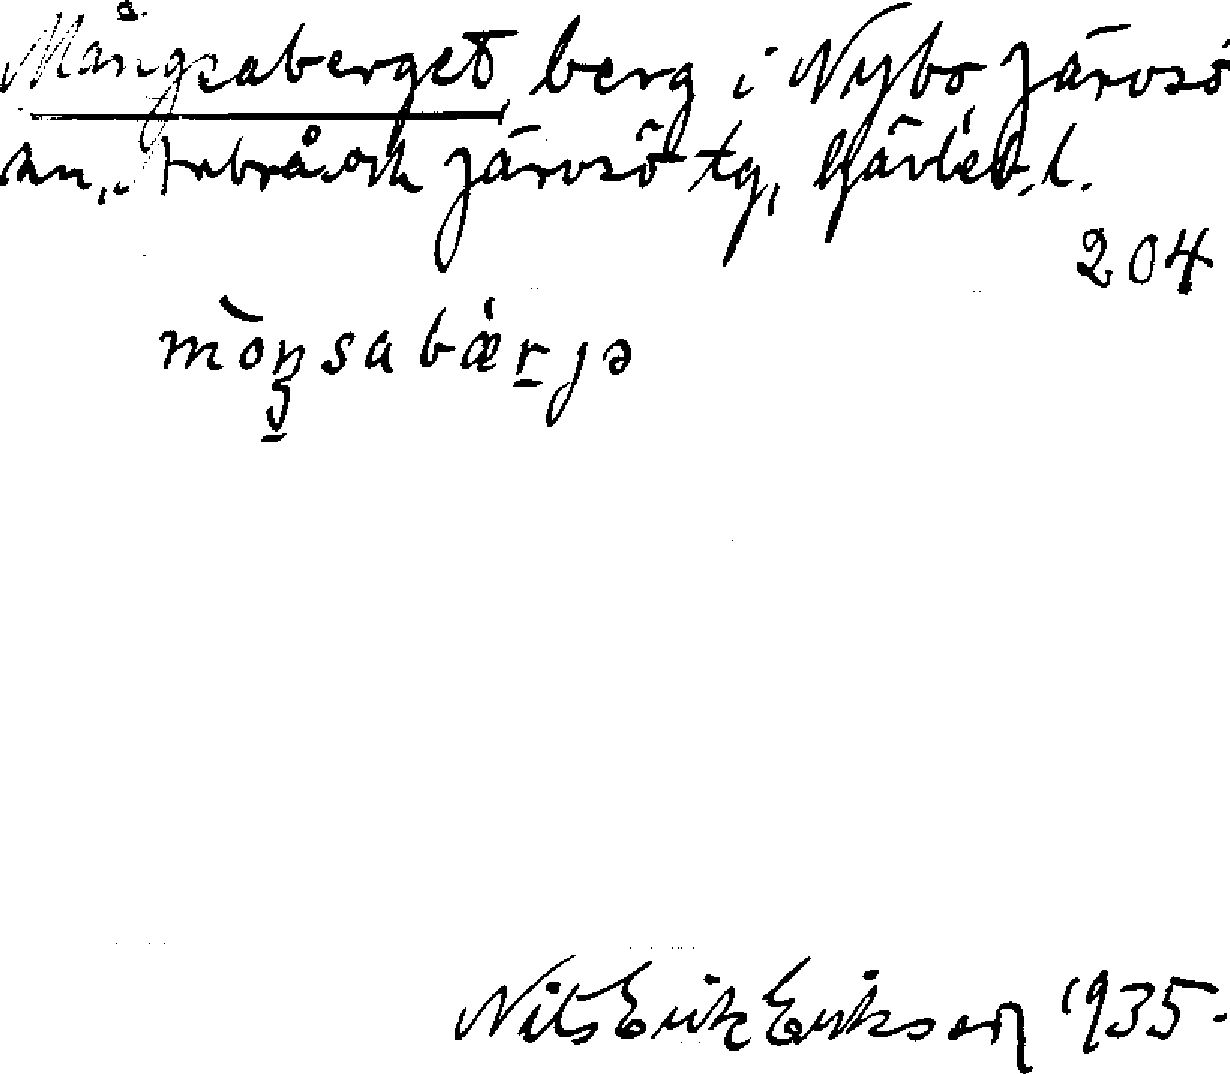 Mångsaberget, berg i Nybo, Järvsö
sn, Arbrå och Järvsö tg, Gävleb. l.
204
mòŋsabǽrjə
Nils Erik Erikson 1935.